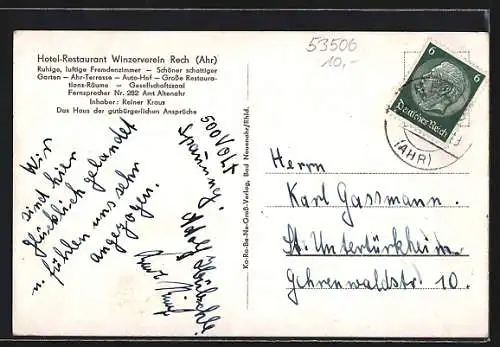 Hotel-Restaurant Winzerverein Rech (Ahr)
Ruhige, luftige Fremdenzimmer — Schöner schattiger
Garten — Ahr-Terrasse — Auto-Hof — Große Restaura-
tions-Räume — Gesellschaftssaal
Fernsprecher Nr. 282 Amt Altenahr
Inhaber: Reiner Kraus
Das Haus der gutbürgerlichen Ansprüche
53506
10,-
6 6
Deutsches Reich
(AHR)
Wir
sind hier
glücklich gelandet
u. fühlen uns sehr
angezogen.
500 Volt
Spannung!
Adolf
Ka-Ra-Be-Ne-Groß-Verlag, Bad Neuenahr/Rhld.
Herrn
Karl Gassmann.
St. Untertürkheim
Gehrenwaldstr. 10.